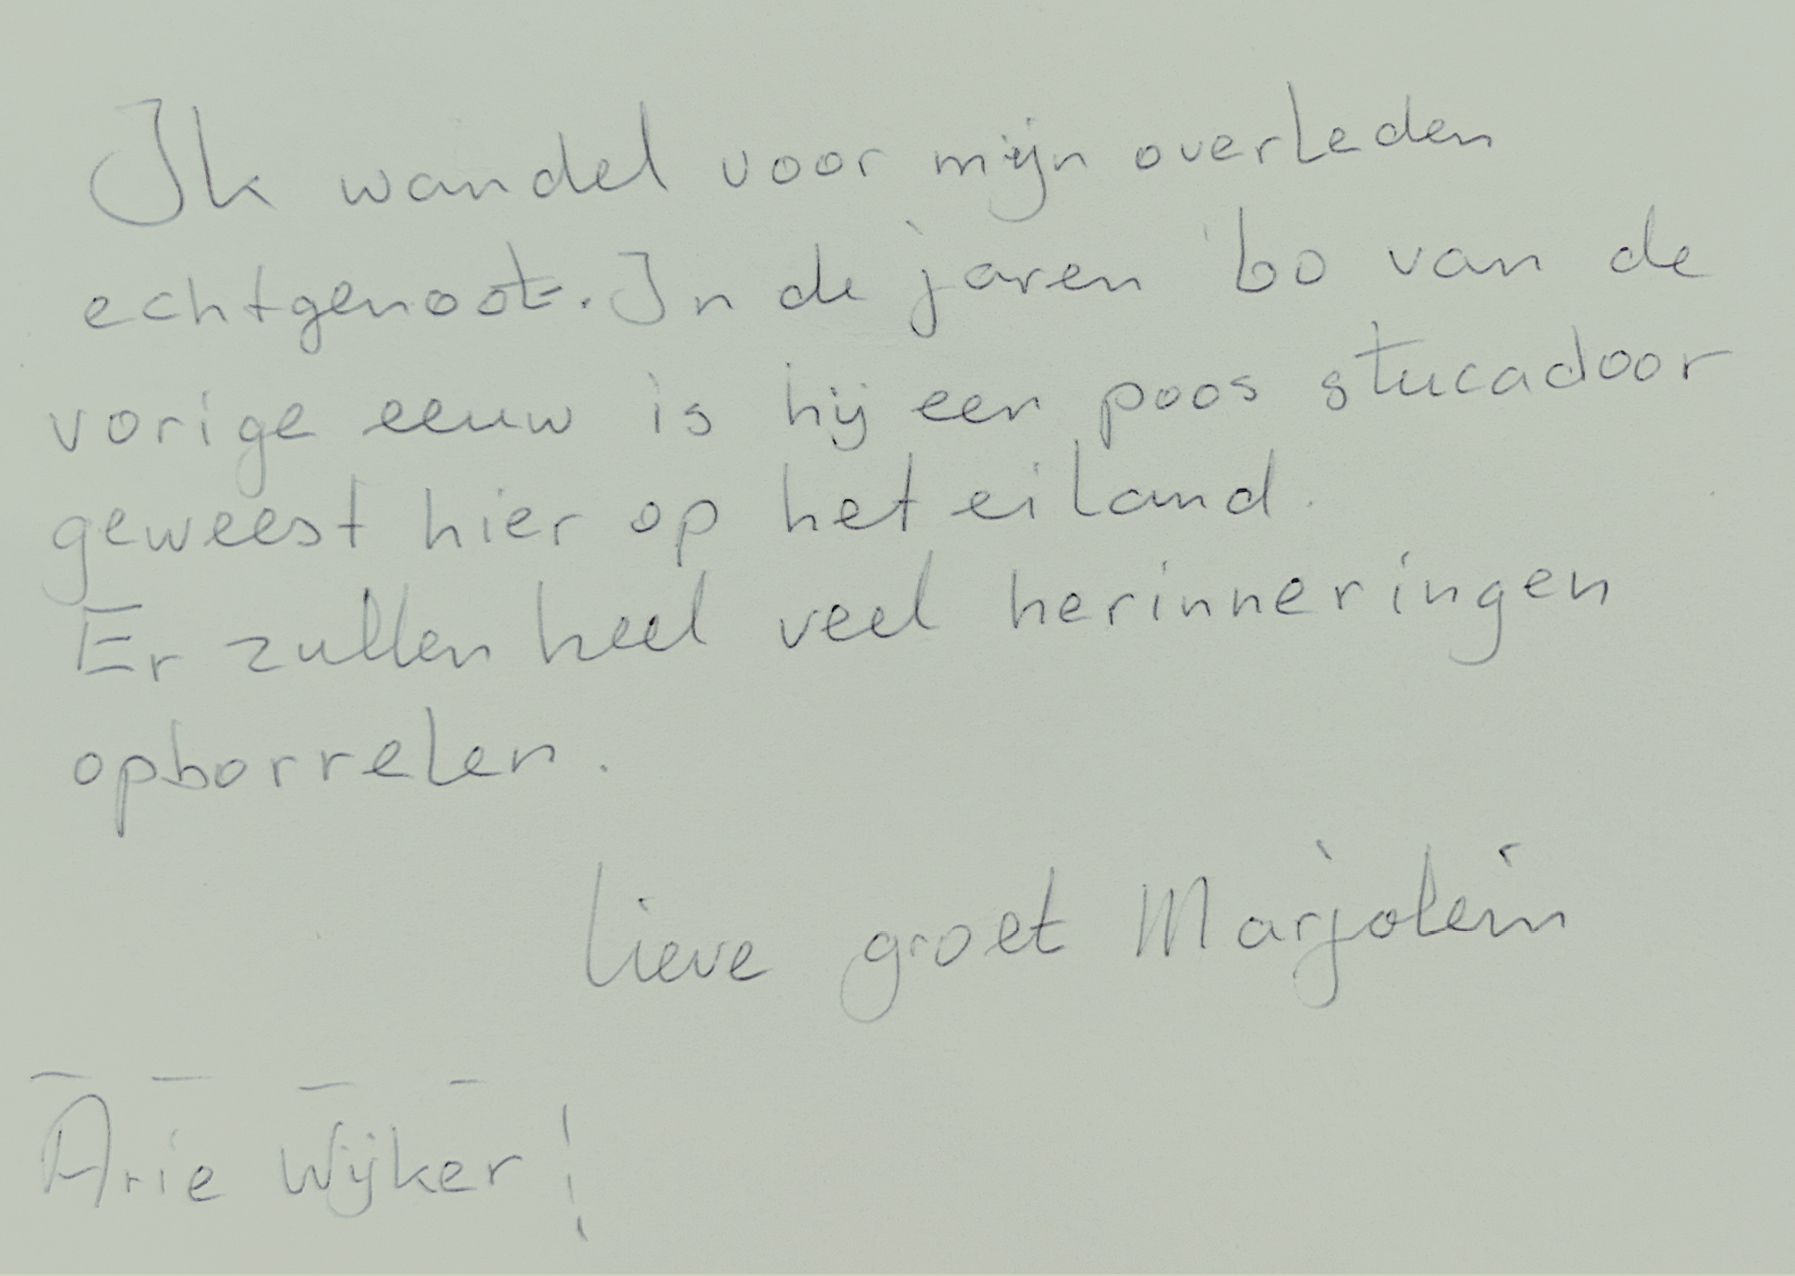 Ik wandel voor mijn overleden
echtgenoot. In de jaren '60 van de
vorige eeuw is hij een poos stucadoor
geweest hier op het eiland.
Er zullen heel veel herinneringen
opborrelen.
lieve groet Marjolein
Arie Wijker!